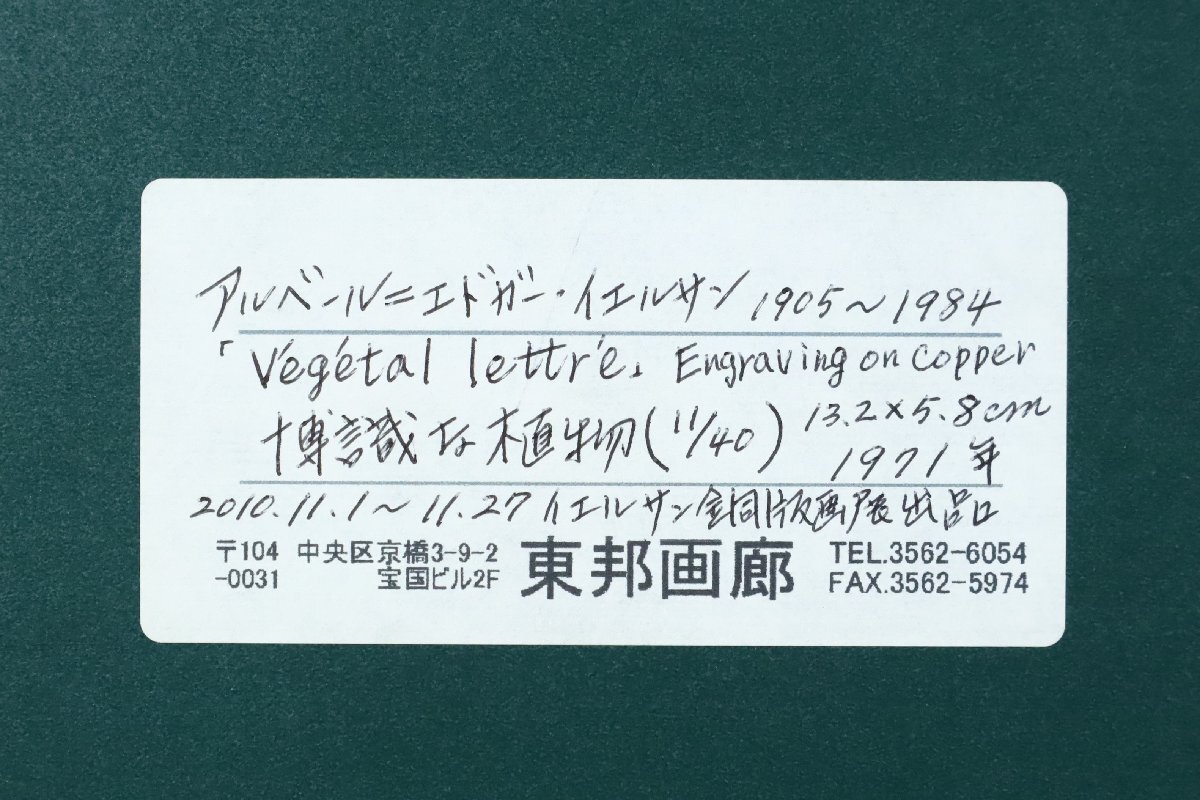 アルベール=エドガー・イエルサン 1905~1984
「Végétal lettré」 Engraving on copper
博識な植物(11/40) 13.2×5.8cm
1971年
2010.11.1~11.27 イエルサン銅版画展出品
〒104-0031 中央区京橋3-9-2 宝国ビル2F 東邦画廊 TEL.3562-6054
FAX.3562-5974